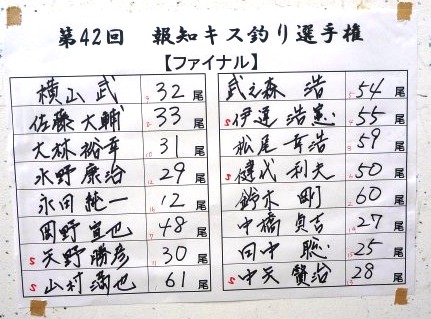 第42回 報知キス釣り選手権
【ファイナル】
横山 武 9 32 尾
佐藤 大輔 8 33 尾
大林 裕幸 10 31 尾
水野 康治 12 29 尾
永田 純一 16 12 尾
岡野 宣也 7 48 尾
S 天野 勝彦 11 30 尾
S 山村 満也 1 61 尾
武之森 浩 5 54 尾
S 伊達 浩憲 4 55 尾
松尾 幸浩 3 59 尾
S 健代 利夫 6 50 尾
鈴木 剛 2 60 尾
中橋 貞吉 14 27 尾
田中 聡 15 25 尾
S 中天 賢治 13 28 尾